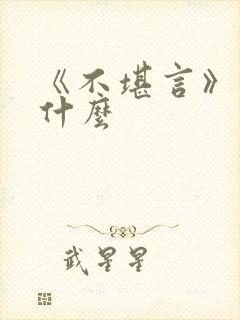 《不堪言》
什麼
武星星